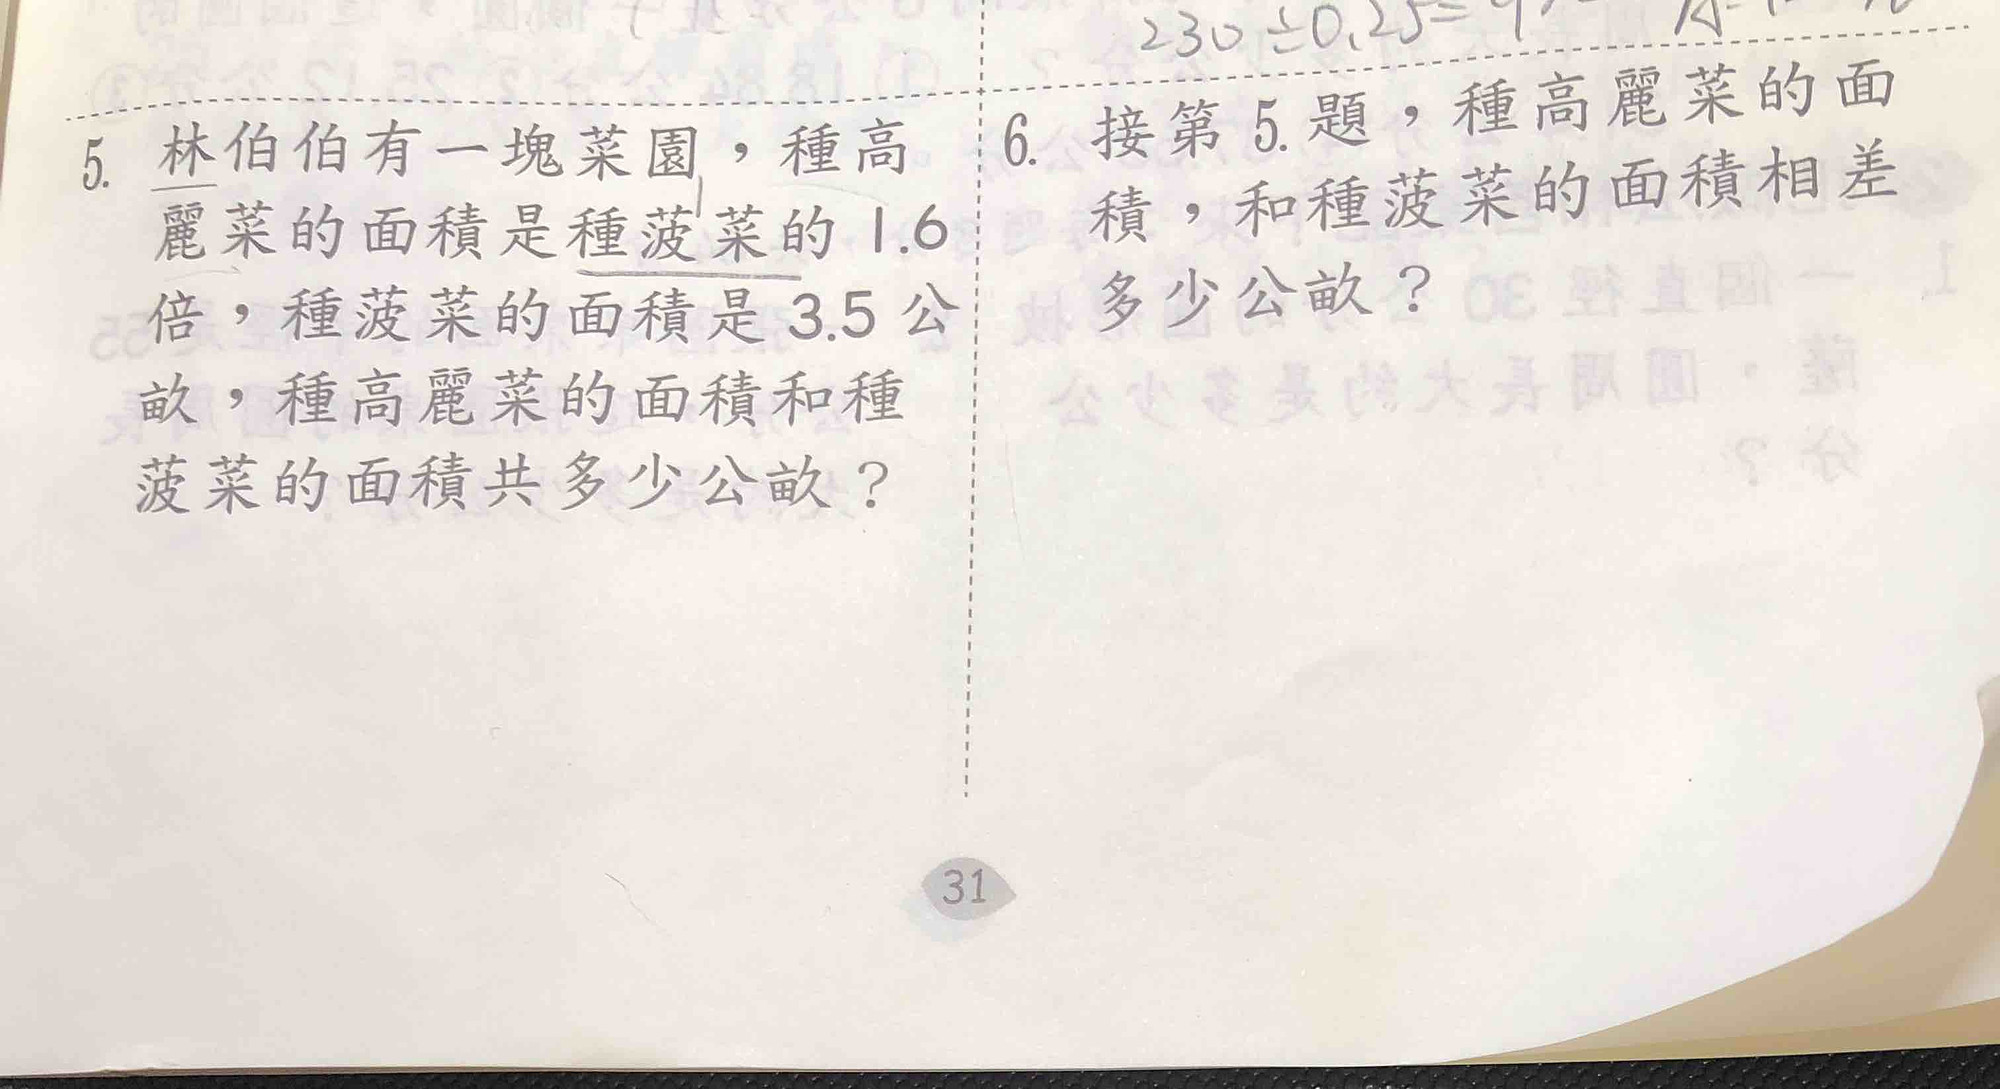 230÷0.25=9
5. 林伯伯有一塊菜園，種高
麗菜的面積是種菠菜的 1.6
倍，種菠菜的面積是 3.5 公
畝，種高麗菜的面積和種
菠菜的面積共多少公畝？
6. 接第 5. 題，種高麗菜的面
積，和種菠菜的面積相差
多少公畝？
31